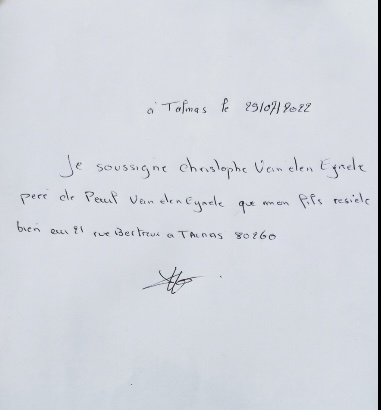 a Talmas le 29/07/2022
Je soussigne Christophe Van den Eynde
pere de Paul Van den Eynde que mon fils reside
bien au 21 rue Bertreux a TALMAS 80260